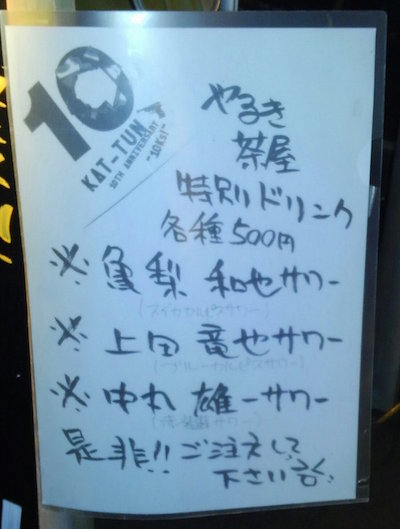 10
KAT-TUN
10TH ANNIVERSARY
"10Ks!"
やるき
茶屋
特別ドリンク
各種500円
※亀梨和也サワー
(スイカカルピスサワー)
※上田竜也サワー
(ブルーカルピスサワー)
※中丸雄一サワー
サワー)
是非!!ご注文して
下さい